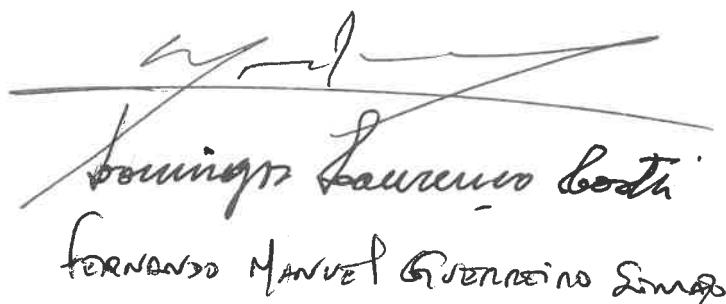 Domingos Lourenço Costa
Fernando Manuel Guerreiro Simão